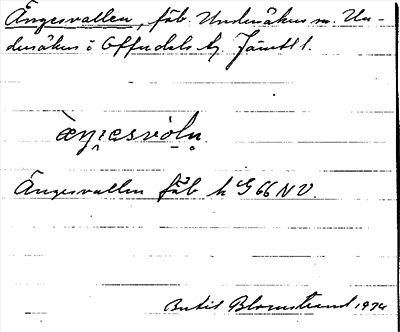 Ängesvallen, fäb. Undersåkers sn. Un-
dersåkers o Offerdals tg. Jämtl l.
æŋ̩esvòlṇ
Ängesvallen fäb k G 66 NV.
Bertil Blomstrand 1974